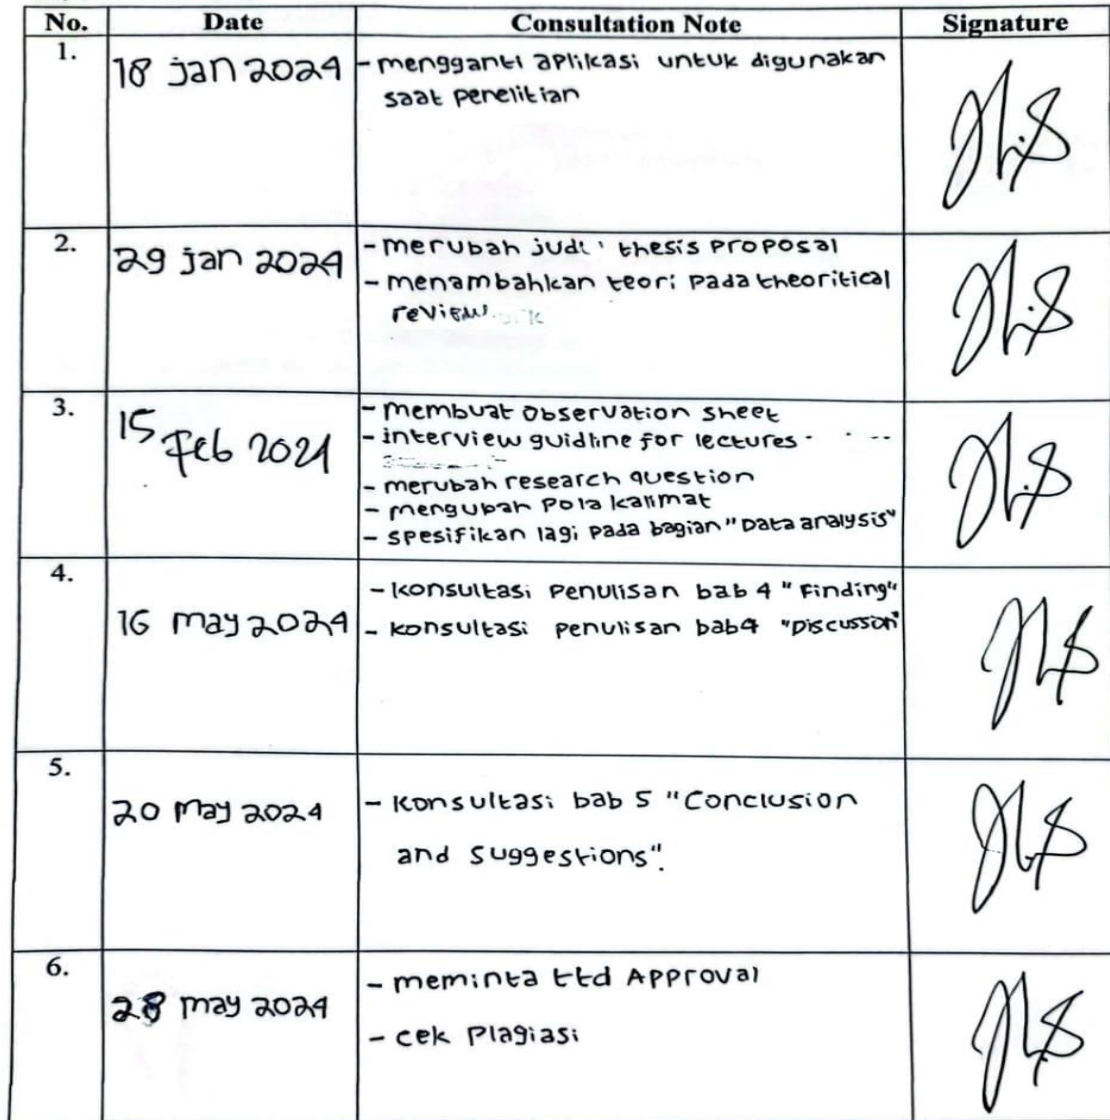 No. Date Consultation Note Signature
1.
18 jan 2024
- mengganti aplikasi untuk digunakan
saat penelitian
2.
29 jan 2024
- merubah thesis proposal
- menambahkan teori pada theoritical
review
3.
15 Feb 2024
- membuat observation sheet
- interview guidline for lectures
- merubah research question
- mengubah pola kalimat
- spesifikan lagi pada bagian "Data analysis"
4.
16 may 2024
- konsultasi penulisan bab 4 "Finding"
- konsultasi penulisan bab4 "Discussion"
5.
20 May 2024
- Konsultasi bab 5 "Conclusion
and Suggestions".
6.
28 may 2024
- meminta ttd Approval
- cek Plagiasi